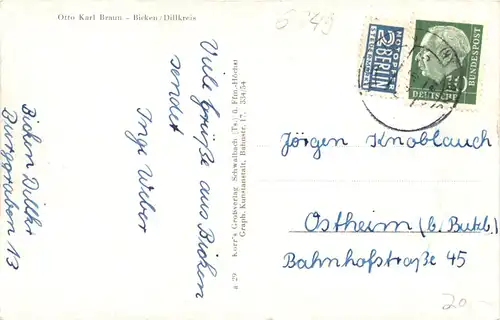 Otto Karl Braun - Bicken/Dillkreis
6 49
NOTOPFER
2 BERLIN
STEUERMARKE
DEUTSCHE
BUNDESPOST
10
Viele Grüße aus Bicken
sendet
Inge Weber
Bicken Dillkr
Burggraben 13
Korr's Großverlag Schwalbach (Ts.) ü. Ffm.-Höchst
Graph. Kunstanstalt, Bahnstr. 17, 334/54
a 29
Jörgen Knoblauch
Ostheim (b. Butzb.)
Bahnhofstraße 45
20.-